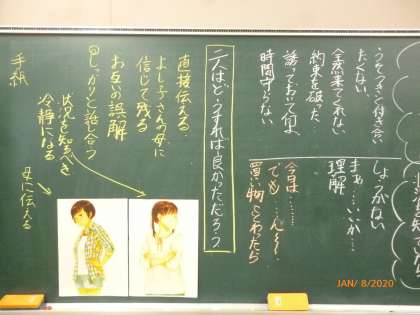 うそつきと付き合い
たくない。
全然来てくれない
約束を破った。
誘っておいて何よ
時間守らない
しょうがない
まぁ……いいか…
理解
今日は………
でも…ん〜〜
買い物とことわったら
二人はどうすれば良かっただろう?
直接伝える。
よし子さんの母に
信じて残る
お互いの誤解
しっかりと話し合う
状況を知るべき
冷静になる
母に伝える
手紙
JAN/ 8/2020